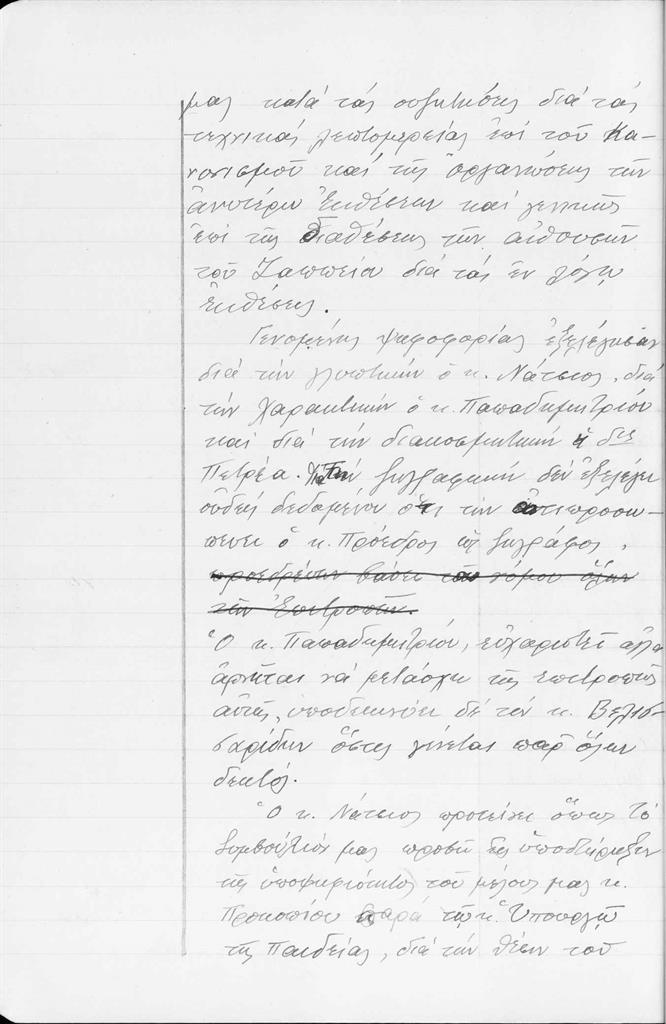 μας κατά τάς συζητήσεις διά τάς
τεχνικάς λεπτομερείας ἐπί τοῦ Κα-
νονισμοῦ καί τῆς ὀργανώσεως τῶν
ἀνωτέρω Ἐκθέσεων καί γενικῶς
ἐπί τῆς διαθέσεως τῶν αἰθουσῶν
τοῦ Ζαππείου διά τάς ἐν λόγῳ
ἐκθέσεις.
Γενομένης ψηφοφορίας ἐξελέγησαν
διά τήν γλυπτικήν ὁ κ. Νάτσιος, διά
τήν Χαρακτικήν ὁ κ. Παπαδημητρίου
καί διά τήν διακοσμητικήν ἡ δις
Πετρέα. Τήν ζωγραφικήν δέν ἐξελέγει
οὐδείς δεδομένου ὅτι τήν ἀντιπροσω-
πεύει ὁ κ. Πρόεδρος ὡς ζωγράφος,
προεδρεύων βάσει τοῦ νόμου ὅλων
τῶν Ἐπιτροπῶν.
Ὁ κ. Παπαδημητρίου, εὐχαριστεῖ αλλα
ἀρνεῖται νά μετάσχῃ τῆς ἐπιτροπῆς
αὐτῆς, ὑποδεικνύει δέ τόν κ. Βελισ-
σαρίδην ὅστις γίνεται παρ' ὅλων
δεκτός.
Ὁ κ. Νάτσιος προτείνει ὅπως τό
Συμβούλιόν μας προβῇ εἰς ὑποστήριξιν
τῆς ὑποψηφιότητος τοῦ μέλους μας κ.
Προκοπίου παρά τῷ κ. Ὑπουργῷ
τῆς Παιδείας, διά τήν θέσιν τοῦ